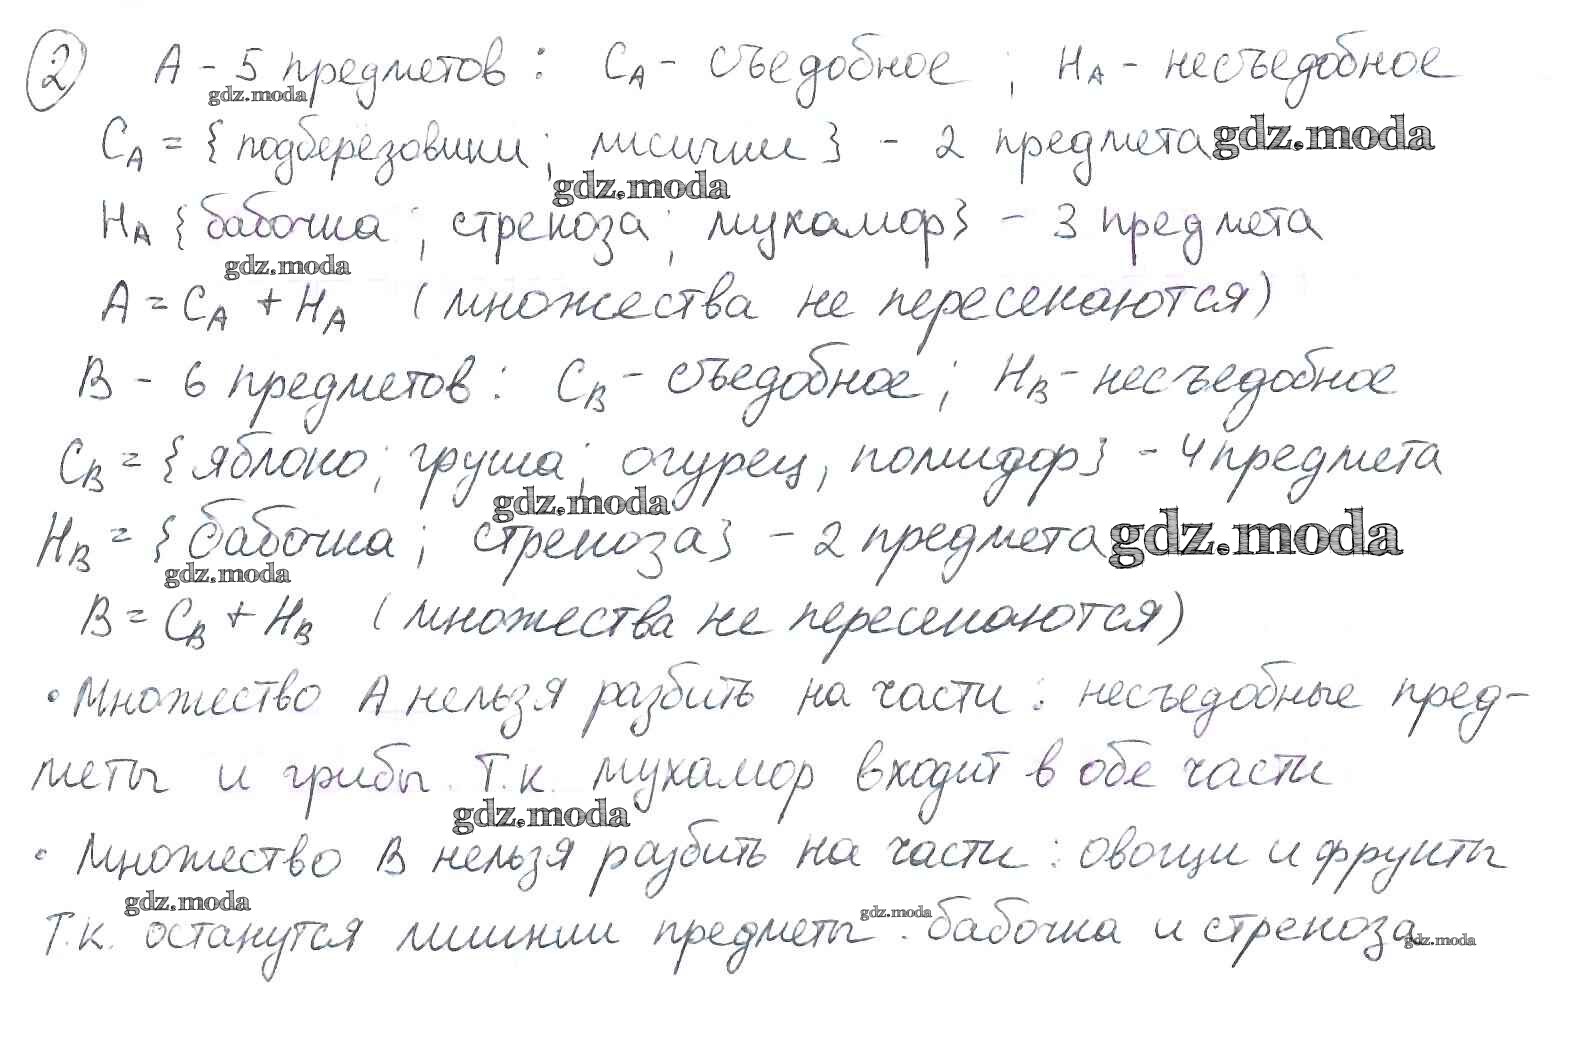 2 А - 5 предметов : СА - съедобное ; НА - несъедобное
gdz.moda
СА = {подберёзовики ; лисички} - 2 предмета gdz.moda
gdz.moda
НА {бабочка ; стрекоза ; мухамор} - 3 предмета
gdz.moda
А = СА + НА (множества не пересекаются)
В - 6 предметов : СВ - съедобное ; НВ - несъедобное
СВ = {яблоко ; груша ; огурец, помидор} - 4 предмета
gdz.moda
НВ = {бабочка ; стрекоза} - 2 предмета gdz.moda
gdz.moda
В = СВ + НВ (множества не пересекаются)
• Множество А нельзя разбить на части : несъедобные пред-
меты и грибы. Т.к. мухамор входит в обе части
gdz.moda
• Множество В нельзя разбить на части : овощи и фрукты
gdz.moda
Т.к. останутся лишнии предметы : бабочка и стрекоза.
gdz.moda
gdz.moda